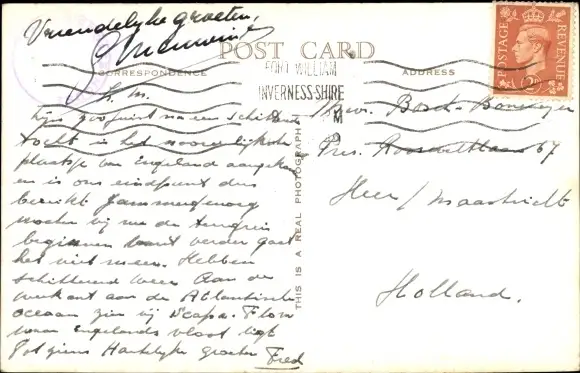 Vriendelijke groeten,
POST CARD
CORRESPONDENCE
ADDRESS
POSTAGE
REVENUE
2D
FORT WILLIAM
INVERNESS-SHIRE
THIS IS A REAL PHOTOGRAPH
L. M.
Zijn zoo juist na een schitterende
tocht in het noordelijkste
plaatsje van Engeland aangekomen
en is ons eindpunt dus
bereikt Jammergenoeg
moeten wij nu de terugreis
beginnen want verder gaat
het niet meer. Hebben
schitterend weer Aan de
aan de Atlantische
oceaan zien wij Scapa-Flow
waar Engelands vloot ligt
Hartelijke groeten Fred
Mevr. Bosch-
Pres. Rooseveltlaan 67
Heer / Maastricht
Holland.